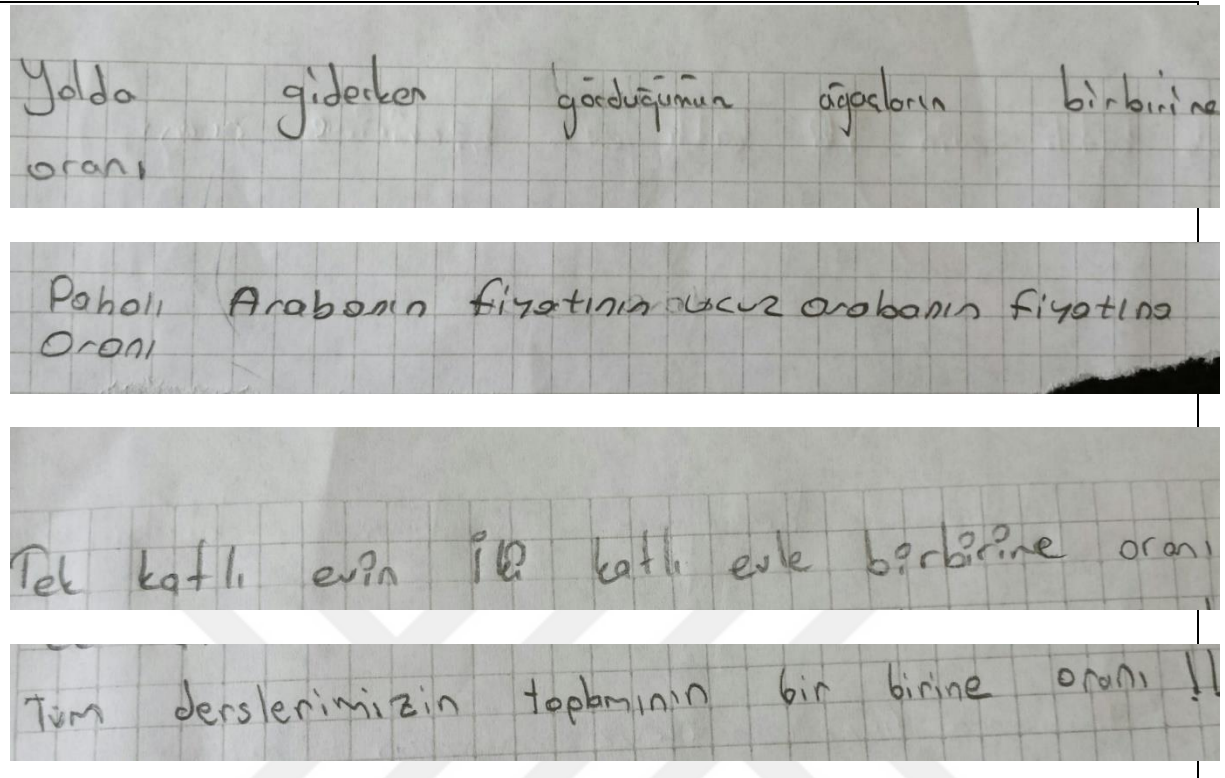 Yolda giderken gördüğümün ağaçların birbirine
oranı
Pahalı Arabanın fiyatının ucuz arabanın fiyatına
Oranı
Tek katlı evin iki katlı evle birbirine oranı
Tüm derslerimizin toplamının bir birine oranı !!